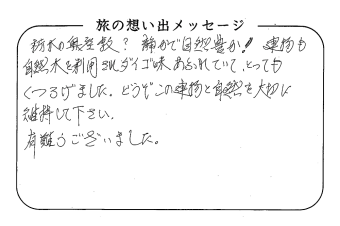 旅の想い出メッセージ
栃木の無尽蔵? 静かで自然豊か! 建物も
自然木を利用されダイゴ味あふれていて、とっても
くつろげました。どうぞこの建物と自然を大切に
維持して下さい。
有難うございました。